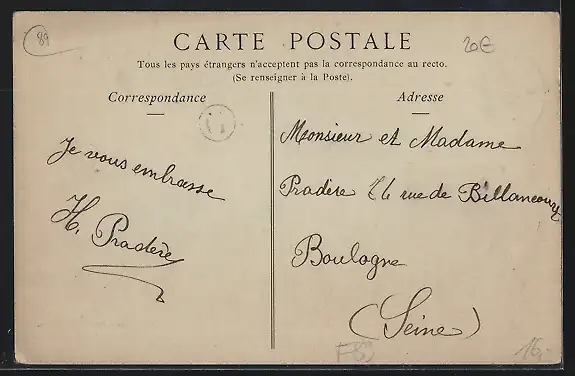 89
CARTE POSTALE
20€
Tous les pays étrangers n'acceptent pas la correspondance au recto.
(Se renseigner à la Poste).
Correspondance
Je vous embrasse
H. Pradère
Adresse
Monsieur et Madame
Pradère 26 rue de Billancourt
Boulogne
(Seine)
16,-